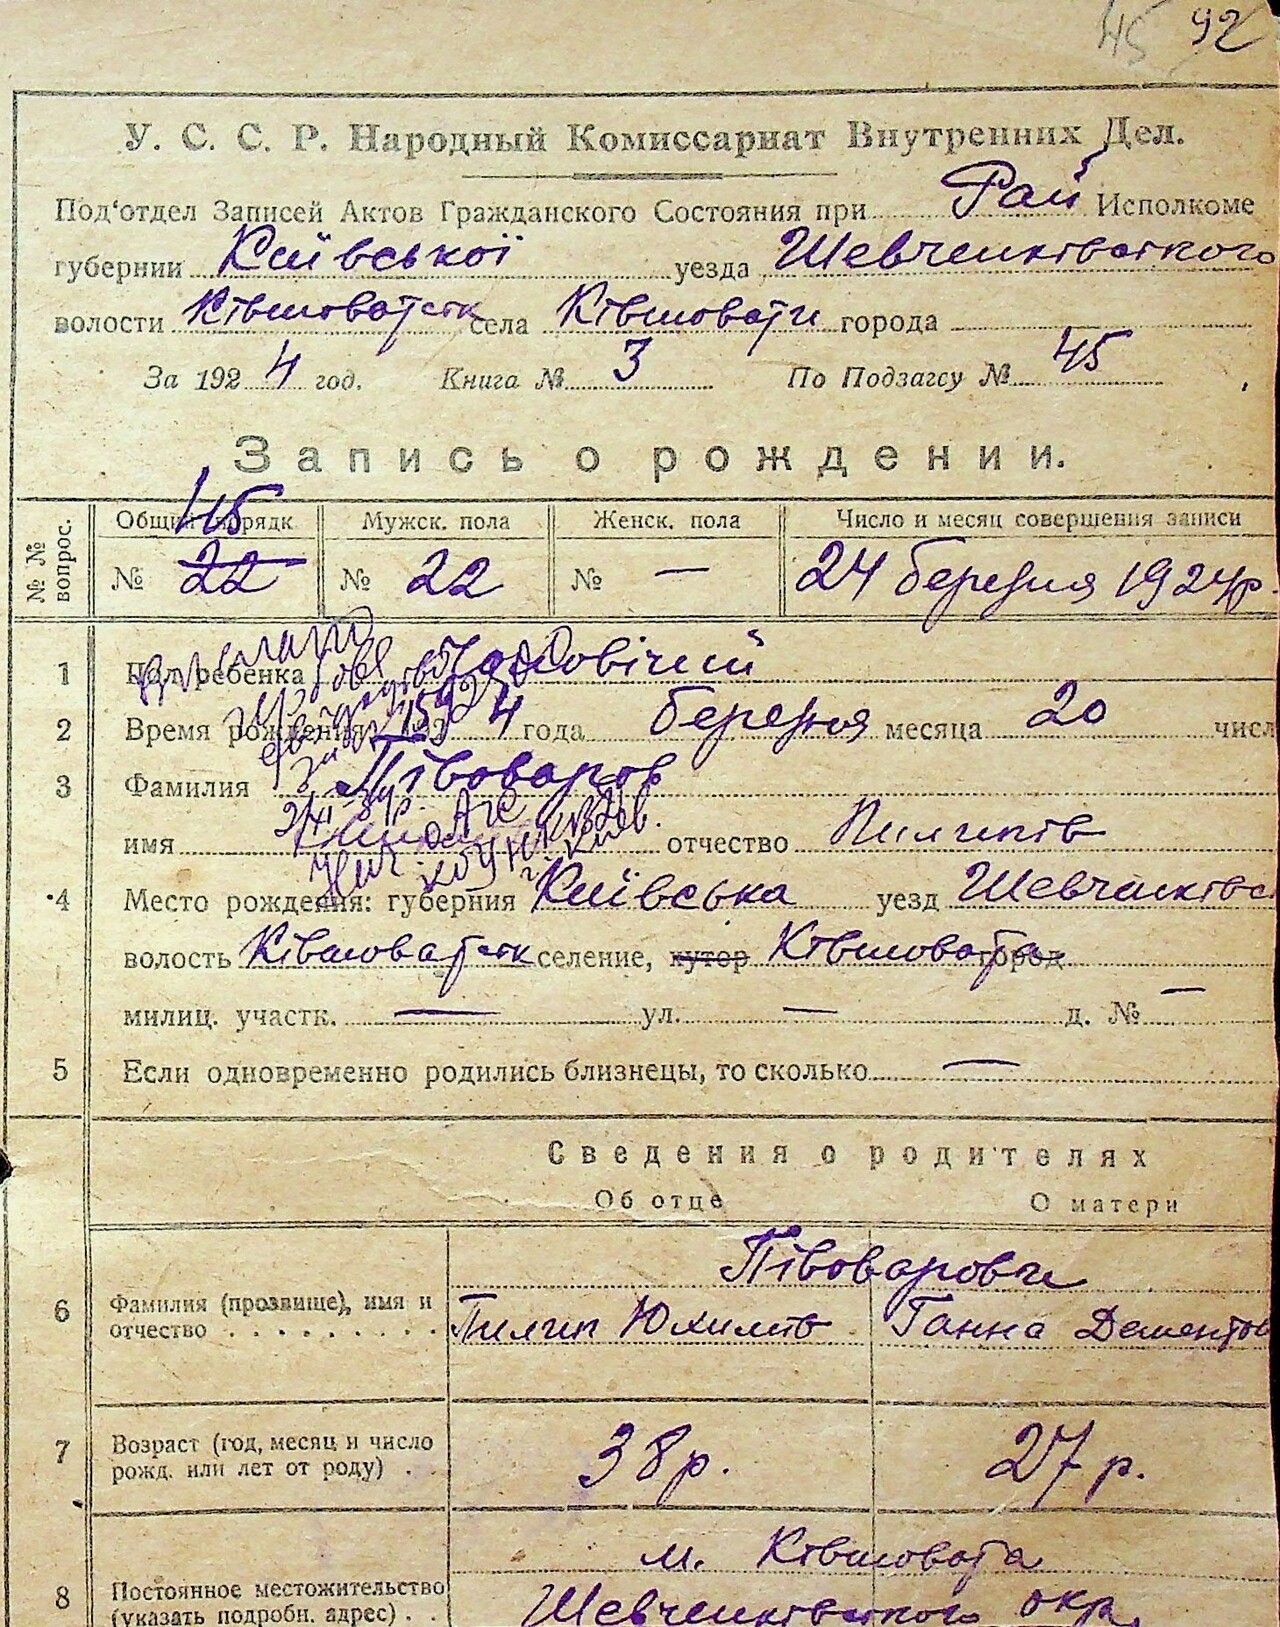 45 92
У. С. С. Р. Народный Комиссариат Внутренних Дел.
Под'отдел Записей Актов Гражданского Состояния при Рай Исполкоме
губернии Київської уезда Шевченківського
волости Ківшоватськ села Ківшовати города
За 1924 год. Книга № 3 По Подзагсу № 45
Запись о рождении.
№ № вопрос.
Общий порядк Мужск. пола Женск. пола Число и месяц совершения записи
45
№ 22 № 22 № — 24 березня 1924 р.
1 Пол ребенка Чоловічий
2 Время рождения: 1924 года березня месяца 20 числ
3 Фамилия Півоваров
имя отчество Пилипів
4 Место рождения: губерния Київська уезд Шевченківсь
волость Ківшоватськ селение, хутор Ківшовата город
милиц. участк. — ул. — д. № —
5 Если одновременно родились близнецы, то сколько —
Сведения о родителях
Об отце О матери
Півоварови
6 Фамилия (прозвище), имя и отчество Пилип Юхимів Ганна Дементов
7 Возраст (год, месяц и число рожд. или лет от роду) 38 р. 27 р.
м. Ківшовата
8 Постоянное местожительство (указать подробн. адрес) Шевченківського окр.